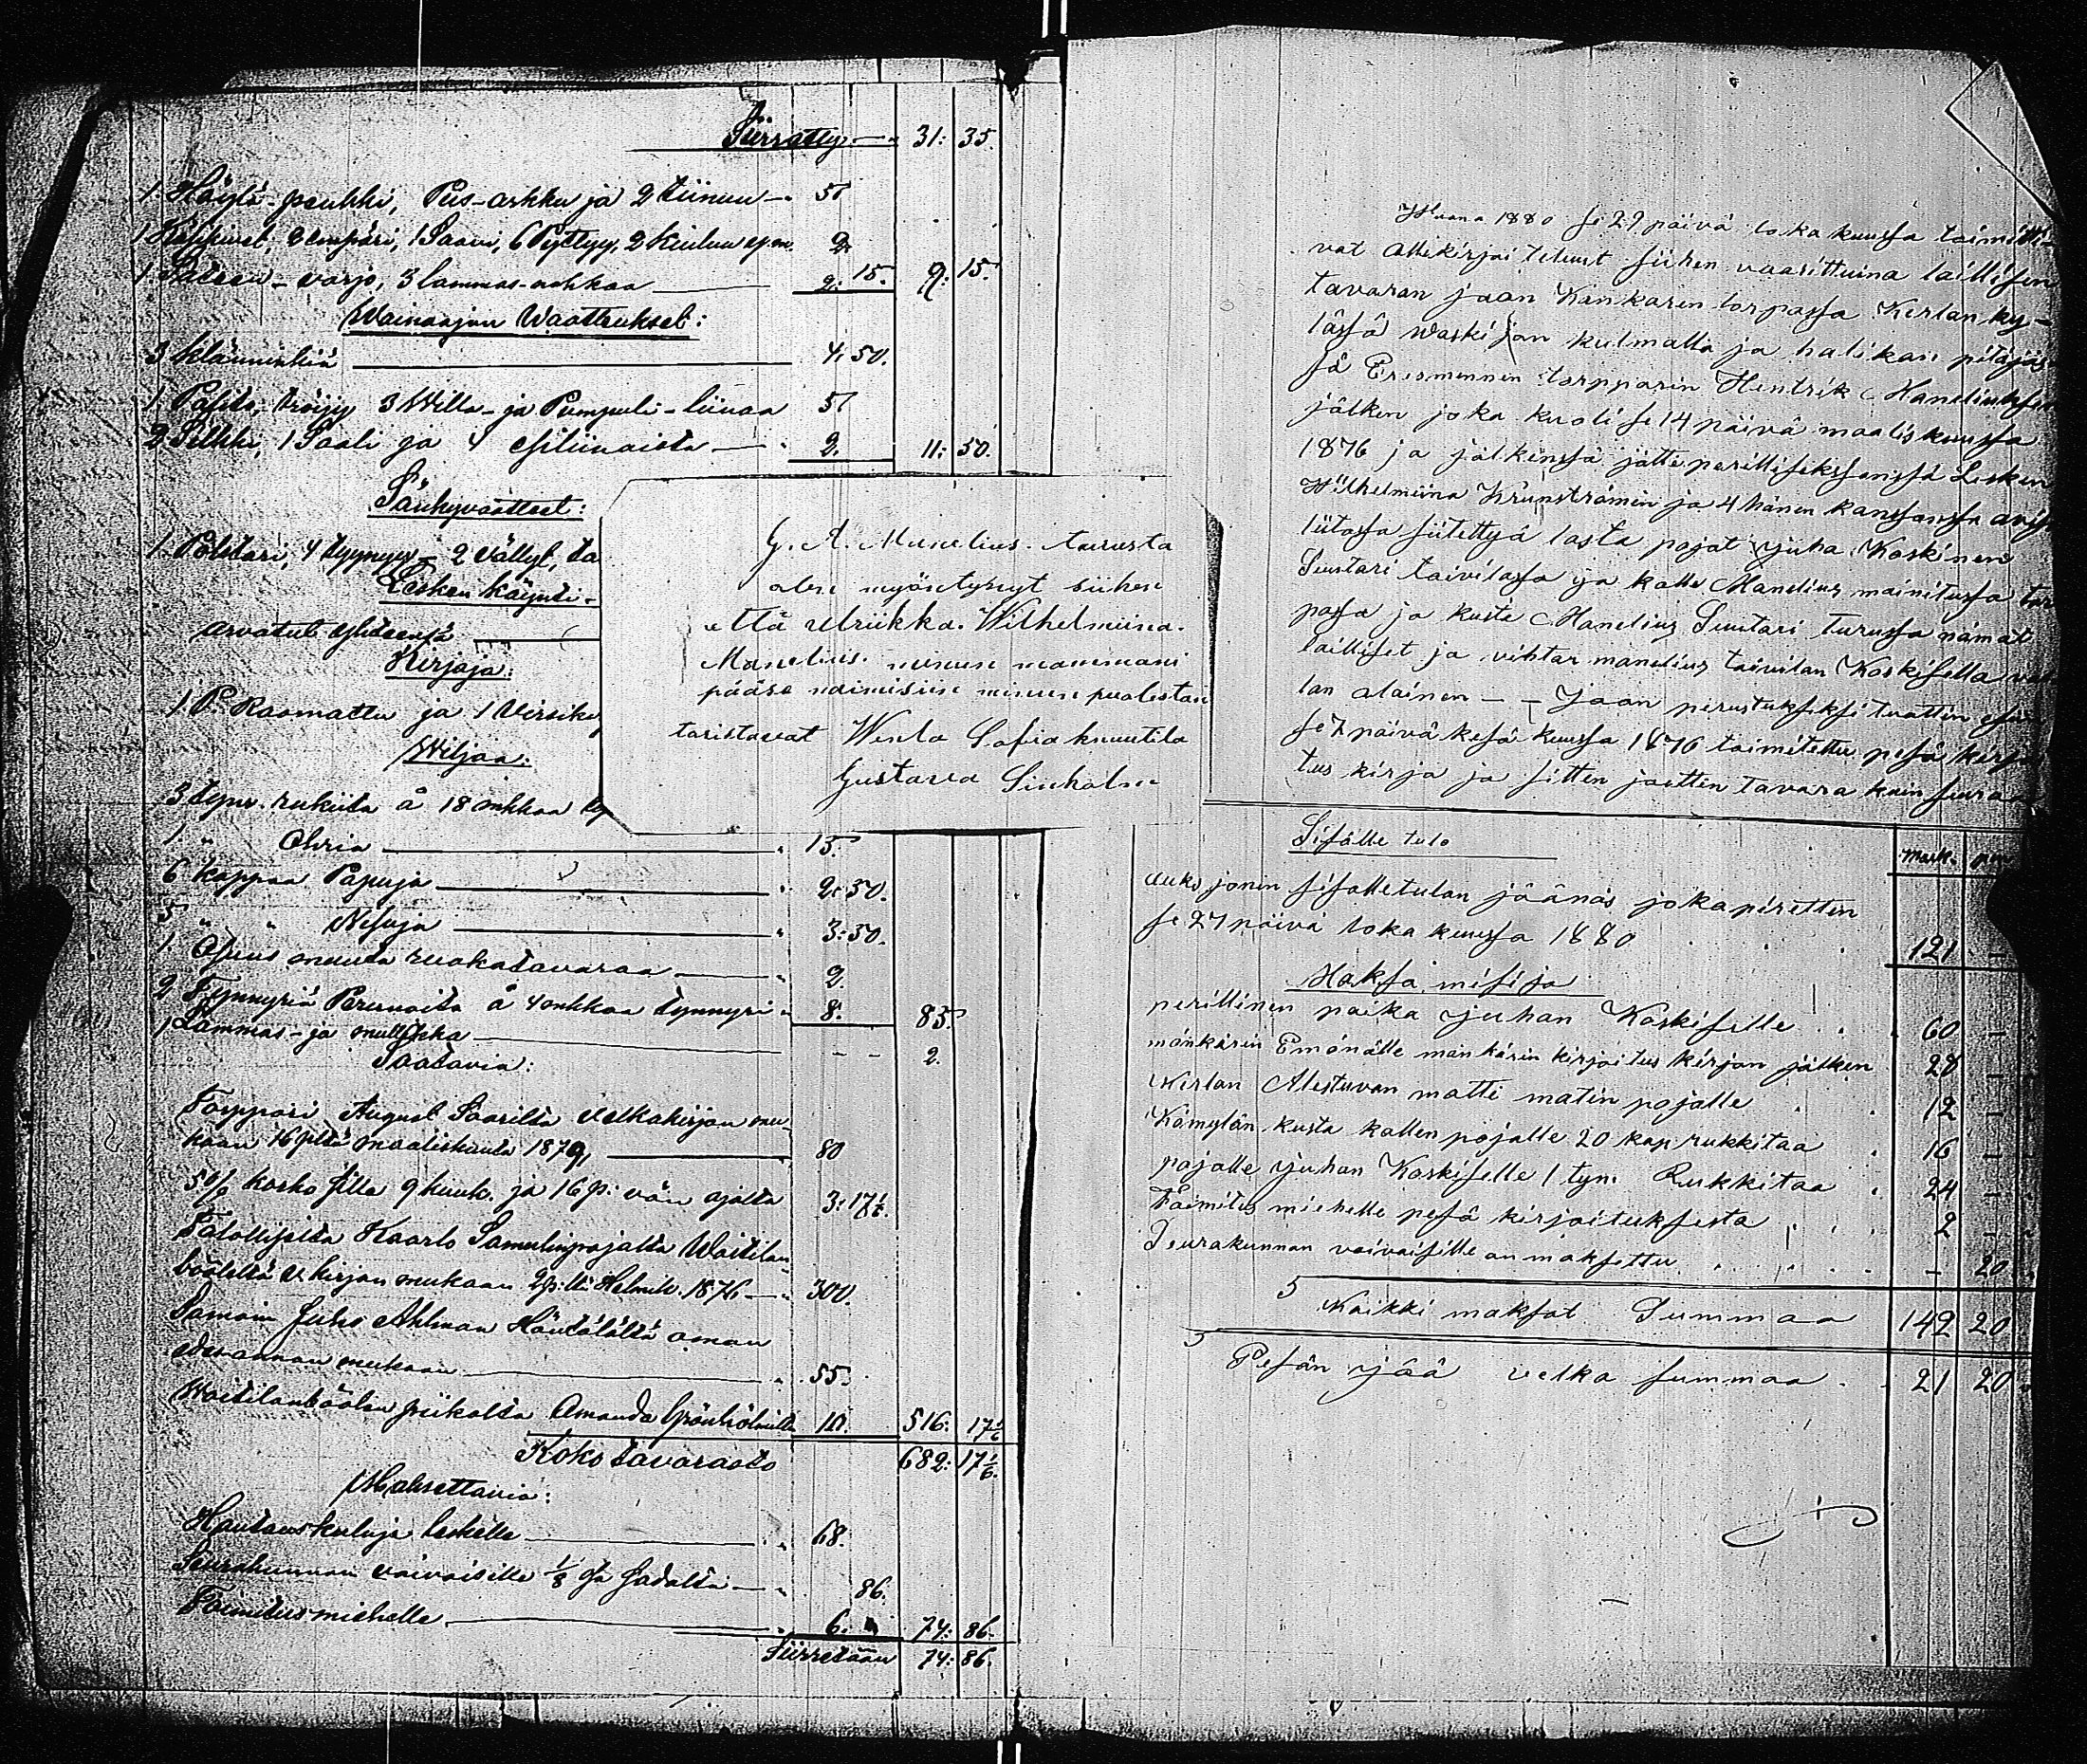 Siirretty — 31: 35.
1. Höylä-penkki, Pus-arkku ja 2 tiinuu — 5
1 Käppivel, 2 empäri, 1 Saavi, 6 Pyttyy, 2 Kiuluu ym. 2.
1. varjo, 3 lammas-nahkaa 2: 15. 9: 15.
Wainaajan Waatteukset:
3 4. 50.
1. tröijy 3 Willa- ja Pumpuli-liinaa 5
2 Silkki, 1 Saali ja 4 esiliinaista — 2. 11: 50.
Sänkyvaatteet:
1. Polstari, 4 tyynyy — 2 Vällyt, ta
Lesken käynti-
arvatut yhteensä
Kirjoja:
1. P. Raamattu ja 1 Virsiky
Wiljaa:
3 tynr. rukiita å 18 mkkaa ty
1. " Ohria " 15.
6 kappaa Papuja " 2: 50.
5 " " Nesuja " 3: 50.
1. Osuus muuta ruokatavaraa " 2.
2 Tynnyriä Perunoita å 4 mkkaa tynnyri " 8. 83.
1 Lammas- ja mullikka - - 2.
Saatavia:
Torppari August Saarilta velkakirjan mu-
kaan 16 p:ltä maaliskuuta 1879, 80
5 % korko sille 9 kuuk. ja 16 p: vän ajalta 3: 17 1/6.
Talolliselta Kaarlo Samulinpojalta Waitilan-
bööleltä v. kirjan mukaan 2 p:ltä Helmik. 1876 — 300.
Samoin Juho Ahlman Häntälältä oman
edesannan mukaan " 55.
Waitilanböölen piikalta Amanda Grönholmilta 10. 516: 17 1/6
Koko tavarasto 682: 17 1/6.
Maksettavia:
Hautauskuluja leskelle " 68.
Seurakunnan vaivaisille 1/8 %ta Sadalta — " 86.
Toimitus miehelle " 6. " 74: 86.
Siirretään 74: 86.
G. A. Manelius. turusta
olen myöntynyt siihen
että ulriikka. Wilhelmiina.
Manelius. minun mammani
pääse naimisiin minun puolestan
toristavat Wenla Sofia knuutila
Gustava Sinholm
Wuona 1880 se 29 päivä loka kuussa toimitti-
vat allekirjoitetuut siihen vaarittuina laillisen
tavaran jaon Kankaren torpassa Kerlan ky-
lässä Waskijan kulmalla ja halikan pitäjäs-
sä Eresmennen torpparin Hentrik Maneliuksen
jälken joka kuoli se 14 päivä maaliskuussa
1876 ja jälkinsä jätte perillisekssansa Lesken
Wilhelmiina Krunströmin ja 4 hänen kanssansa avi
liitossa siitettyä lasta pojat Juha Koskinen
Suutari taivilassa ja kalle Manelius mainitussa tor
passa ja kusta Manelius Suutari turussa nämat
lailliset ja vihtar manelius taivilan Koskisella val
lan alainen — — Jaon perustukseksi tuottin esin
se 7 päivä kesä kuussa 1876 toimitettu pesä kirjoi
tus kirja ja sitten jaettin tavara kuin seuraa
Sisälle tulo Mark. pen
auks jonin sisalletulan jäänäs joka pirettin
se 27 päivä loka kuussa 1880 121 —
Maksa misija
perillinen paika Juhan Koskiselle . . 60 —
mankärin Emönälle mankärin kirjoitus kirjan jälken 28 —
Kerlan Alestuvan matti matin pojalle . . 12 —
Kämylän kusta kallen pojalle 20 kap rukkitaa . 16 —
pajalle Juhan Koskiselle 1 tyn. Rukkitaa . 24 —
Toimitus miehelle pesä kirjoituksesta . . . 2 —
Seurakunnan vaivaisille on maksettu . . . . — 20
Kaikki maksot Summaa 142 20
Pesän jää velka summaa . . 21 20